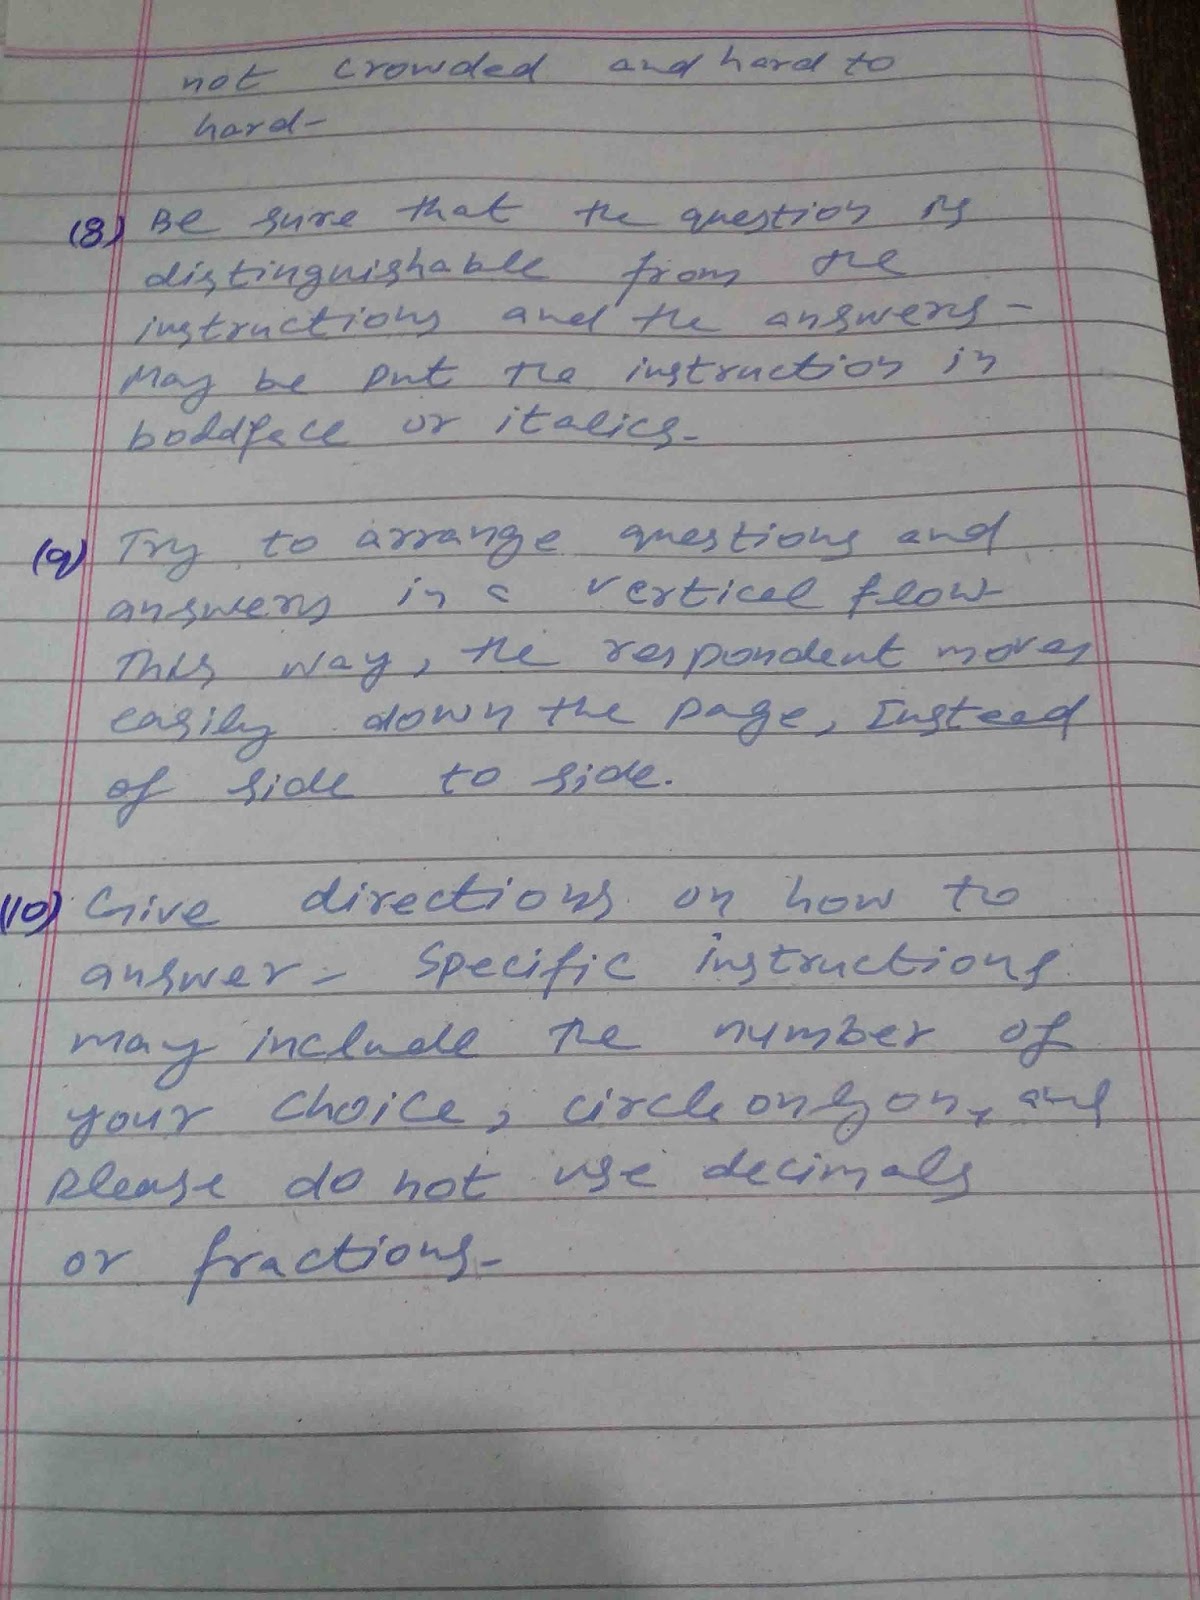 not crowded and hard to
hard-
(8) Be sure that the question is
distinguishable from the
instructions and the answers -
May be put the instruction in
boldface or italics-
(9) Try to arrange questions and
answers in a vertical flow
This way, the respondent moves
easily down the page, Instead
of side to side.
(10) Give directions on how to
answer - Specific instructions
may include the number of
your choice, circle only on, and
please do not use decimals
or fractions-